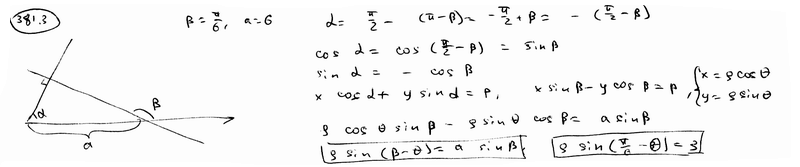 381.3
β = π/6, a = 6
α = π/2 - (π - β) = -π/2 + β = - (π/2 - β)
cos α = cos (π/2 - β) = sin β
sin α = - cos β
x cos α + y sin α = P, x sin β - y cos β = P, { x = ρ cos θ
y = ρ sin θ
ρ cos θ sin β - ρ sin θ cos β = a sin β
ρ sin (β - θ) = a sin β, ρ sin (π/6 - θ) = 3
α
β
a